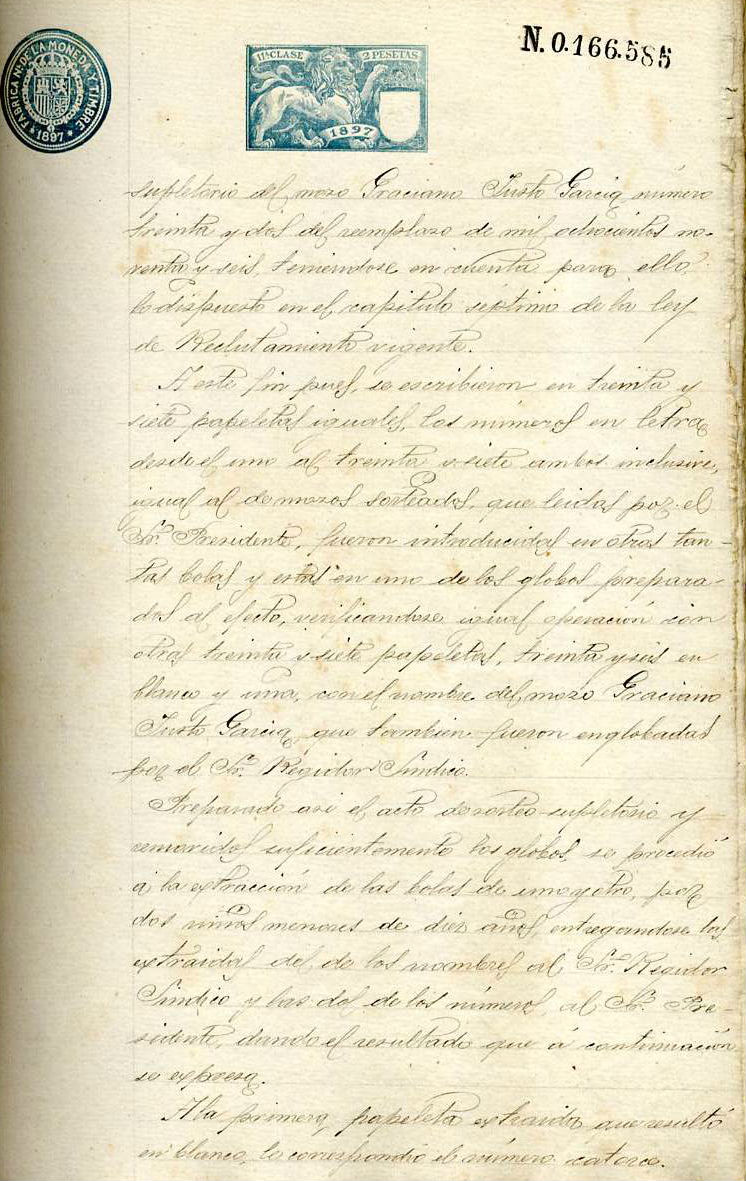 FABRICA NAL DE LA MONEDA Y TIMBRE
1897
11ª CLASE 2 PESETAS
1897
N.0.166.585
supletorio del mozo Graciano Justo Garcia número
treinta y dos del reemplazo de mil ochocientos no-
venta y seis, teniendose en cuenta para ello
lo dispuesto en el capitulo séptimo de la ley
de Reclutamiento vigente.
A este fin pues, se escribieron en treinta y
siete papeletas iguales, los números en letra
desde el uno al treinta y siete ambos inclusive,
igual al de mozos sorteados, que leidas por el
Sr. Presidente, fueron introducidas en otras tan-
tas bolas y estas en uno de los globos prepara-
dos al efecto, verificandose igual operación con
otras treinta y siete papeletas, treinta y seis en
blanco y una, con el nombre del mozo Graciano
Justo Garcia, que tambien fueron englobadas
por el Sr. Regidor Sindico.
Preparado asi el acto de sorteo supletorio y
removidos suficientemente los globos, se procedió
á la extracción de las bolas de uno y otro, por
dos niños menores de diez años, entregandose las
extraidas del de los nombres al Sr. Regidor
Sindico y las del de los números, al Sr. Pre-
sidente, dando el resultado que á continuación
se expresa.
A la primera papeleta extraida que resultó
en blanco, le correspondió el número catorce.